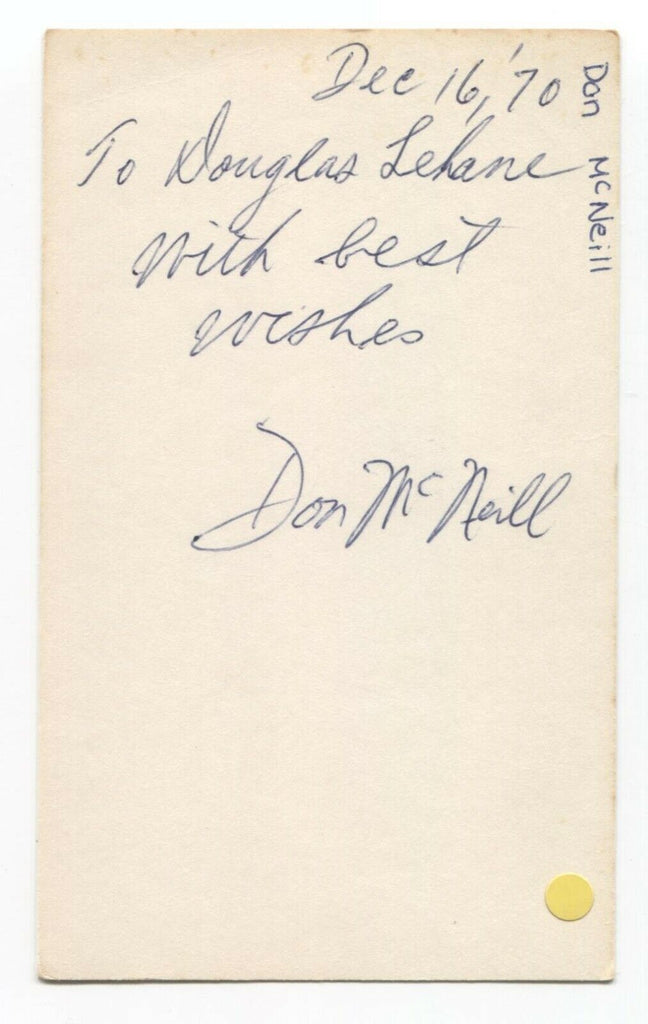 Dec 16, '70
To Douglas Lehane
with best
wishes
Don McNeill
Don McNeill